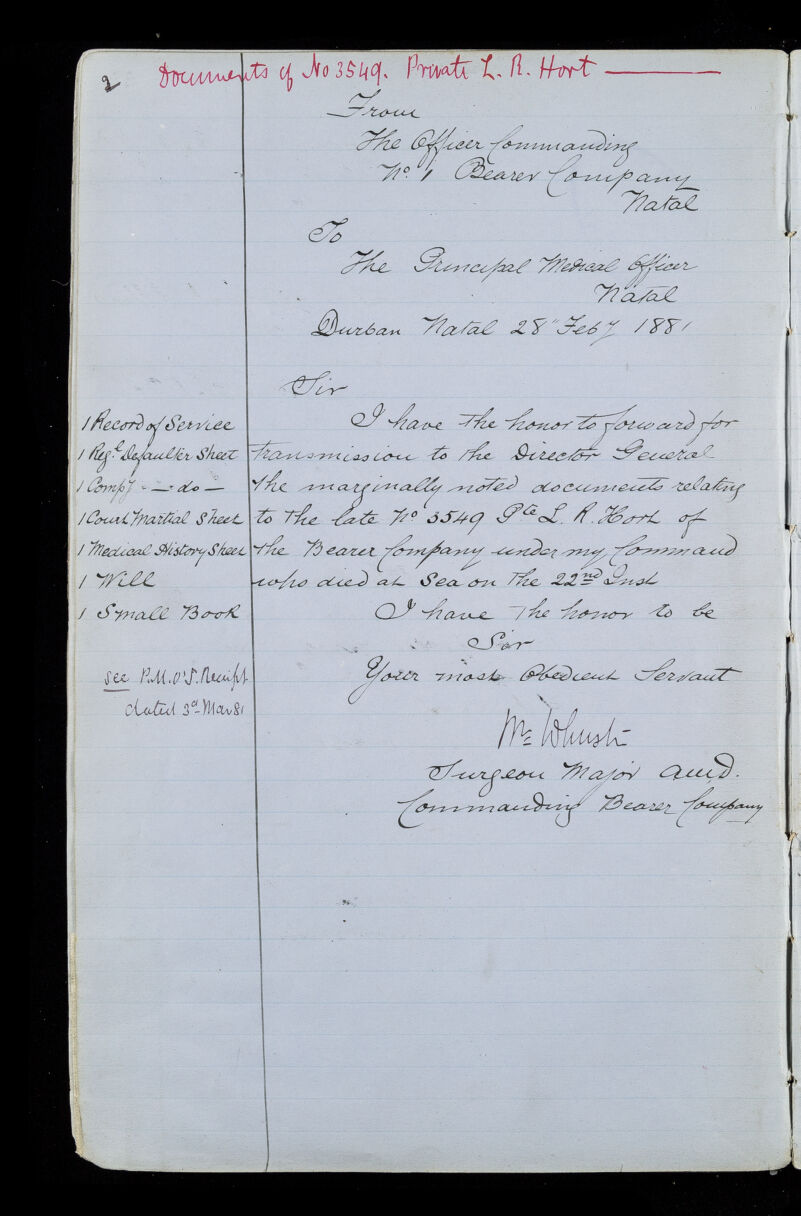 2
Documents of No 3549. Private L. R. Hort
From
The Officer Commanding
No. 1 Bearer Company
Natal
To
The Principal Medical Officer
Natal
Durban Natal 28" Feby 1881
Sir
I have the honor to forward for
transmission to the Director General
the marginally noted documents relating
to the late No 3549 Pte L. R. Hort of
the Bearer Company under my Command
who died at Sea on the 22nd Inst
I have the honor to be
Sir
Your most Obedient Servant
Surgeon Major A.M.D.
Commanding Bearer Company
1 Record of Service
1 Regl. Defaulter Sheet
1 Compy - — do —
1 Court Martial Sheet
1 Medical History Sheet
1 Will
1 Small Book
see P.M.O's. Receipt
dated 3d Mar 81